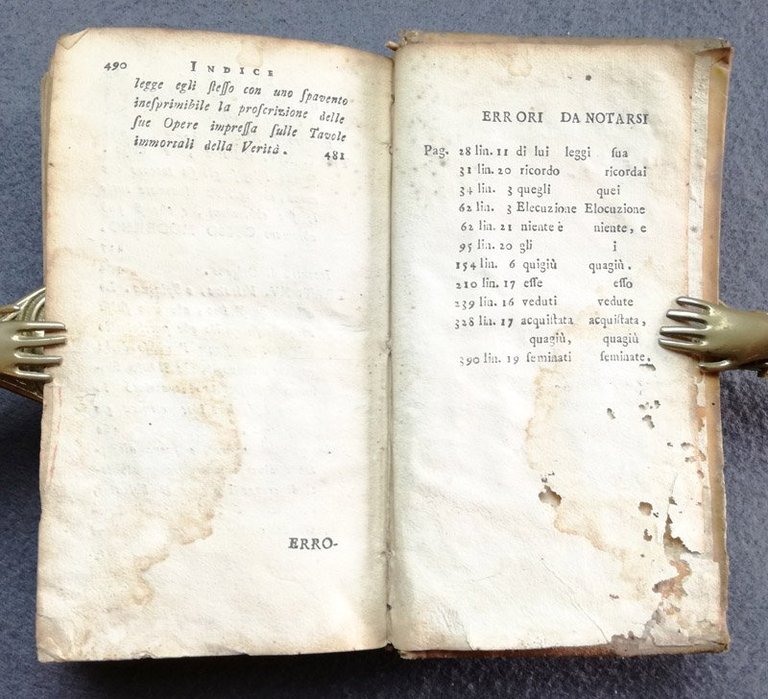 490 INDICE
legge egli ſteſſo con uno ſpavento
ineſprimibile la proſcrizione delle
ſue Opere impreſſa ſulle Tavole
immortali della Verità. 481
ERRO-
ERRORI DA NOTARSI
Pag. 28 lin. 11 di lui leggi ſua
31 lin. 20 ricordo ricordai
34 lin. 3 quegli quei
62 lin. 3 Elecuzione Elocuzione
62 lin. 21 niente è niente, e
95 lin. 20 gli i
154 lin. 6 quigiù quagiù.
210 lin. 17 eſſe eſſo
239 lin. 16 veduti vedute
328 lin. 17 acquiſtata acquiſtata,
quagiù, quagiù
390 lin. 19 ſeminati ſeminate.